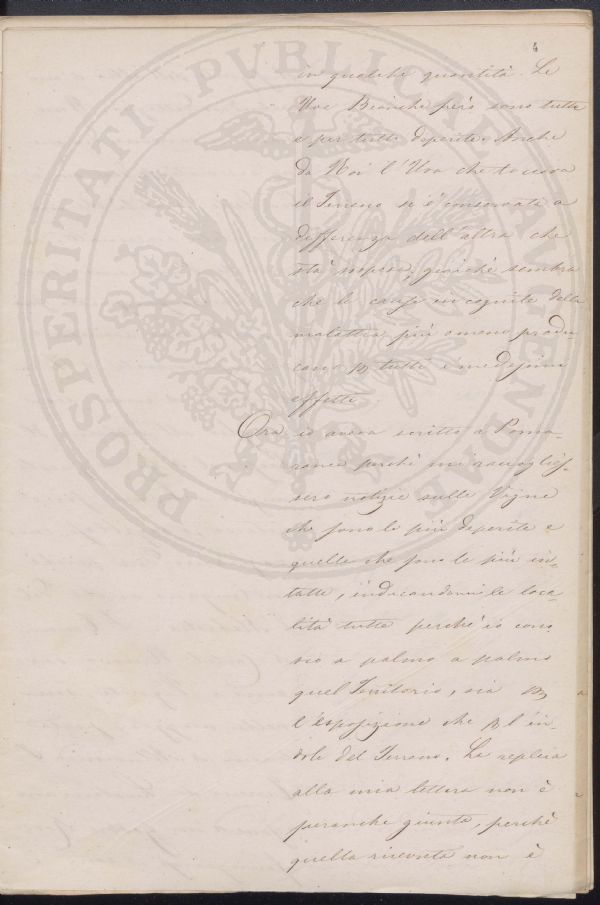 4
in qualche quantità. Le
Uve Bianche però sono tutte
e per tutto deperite. Anche
da Noi l'Uva che toccava
il Terreno si è conservata a
differenza dell'altra che
stà sospesa, giacchè sembra
che le cause incognite della
malattia più o meno produ-
cano tutti i medesimi
effetti.
Ora io aveva scritto a Poma-
rance perchè mi raccoglies-
sero notizie sulle Vigne
che sono le più deperite e
quelle che sono le più in-
tatte, indicandomi le loca-
lità tutte perchè io cono
sco a palmo a palmo
quel Territorio, sia
l'esposizione che l'in-
dole del Terreno. La replica
alla mia lettera non è
peranche giunta, perchè
quella ricevuta non è
PROSPERITATI PVBLICAE AVGENDAE